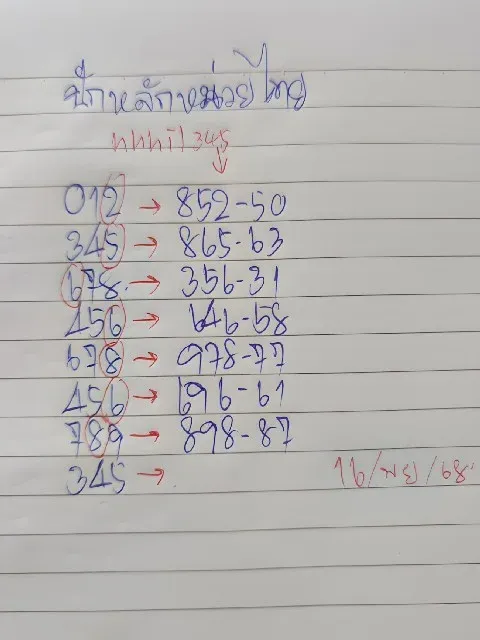 ปักหลักหน่วยไทย
345
012 → 852-50
345 → 865-63
678 → 356-31
456 → 646-58
678 → 978-77
456 → 696-61
789 → 898-87
345 →
16/พย/68